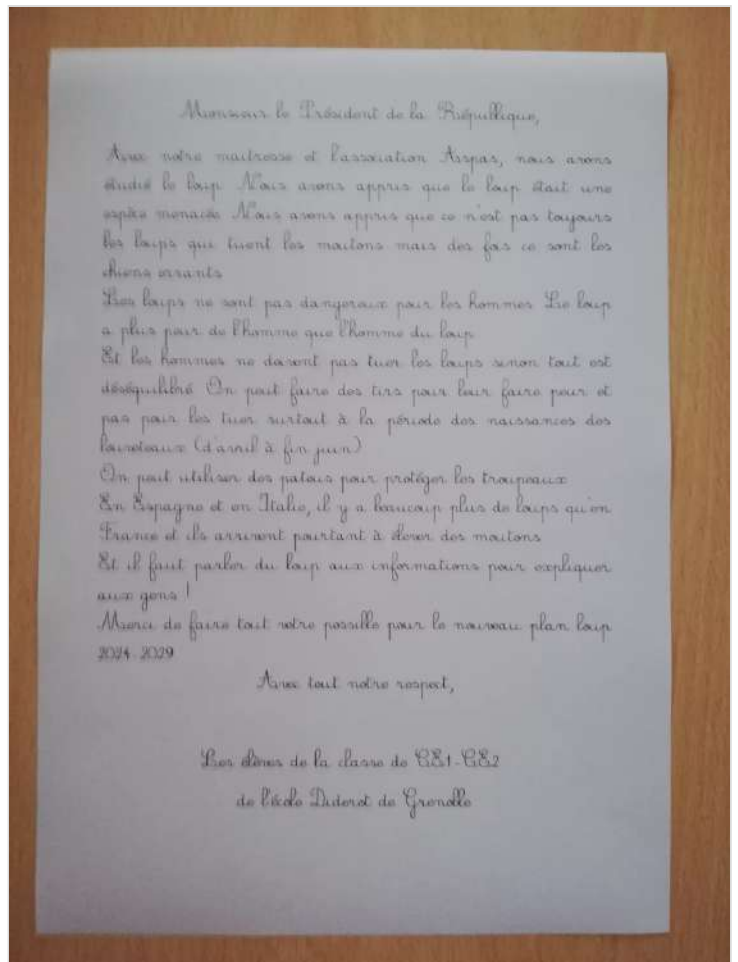 Monsieur le Président de la République,
Avec notre maîtresse et l'association Aspas, nous avons
étudié le loup. Nous avons appris que le loup était une
espèce menacée. Nous avons appris que ce n'est pas toujours
les loups qui tuent les moutons mais des fois ce sont les
chiens errants.
Les loups ne sont pas dangereux pour les hommes. Le loup
a plus peur de l'homme que l'homme du loup.
Et les hommes ne doivent pas tuer les loups sinon tout est
déséquilibré. On peut faire des tirs pour leur faire peur et
pas pour les tuer surtout à la période des naissances des
louveteaux (d'avril à fin juin).
On peut utiliser des patous pour protéger les troupeaux.
En Espagne et en Italie, il y a beaucoup plus de loups qu'en
France et ils arrivent pourtant à élever des moutons.
Et il faut parler du loup aux informations pour expliquer
aux gens !
Merci de faire tout votre possible pour le nouveau plan loup
2024-2029.
Avec tout notre respect,
Les élèves de la classe de CE1-CE2
de l'école Diderot de Grenoble